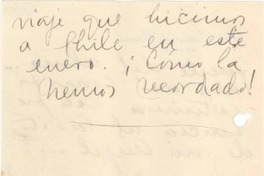 viaje que hicimos
a Chile en este
enero. ¡Como la
hemos recordado!